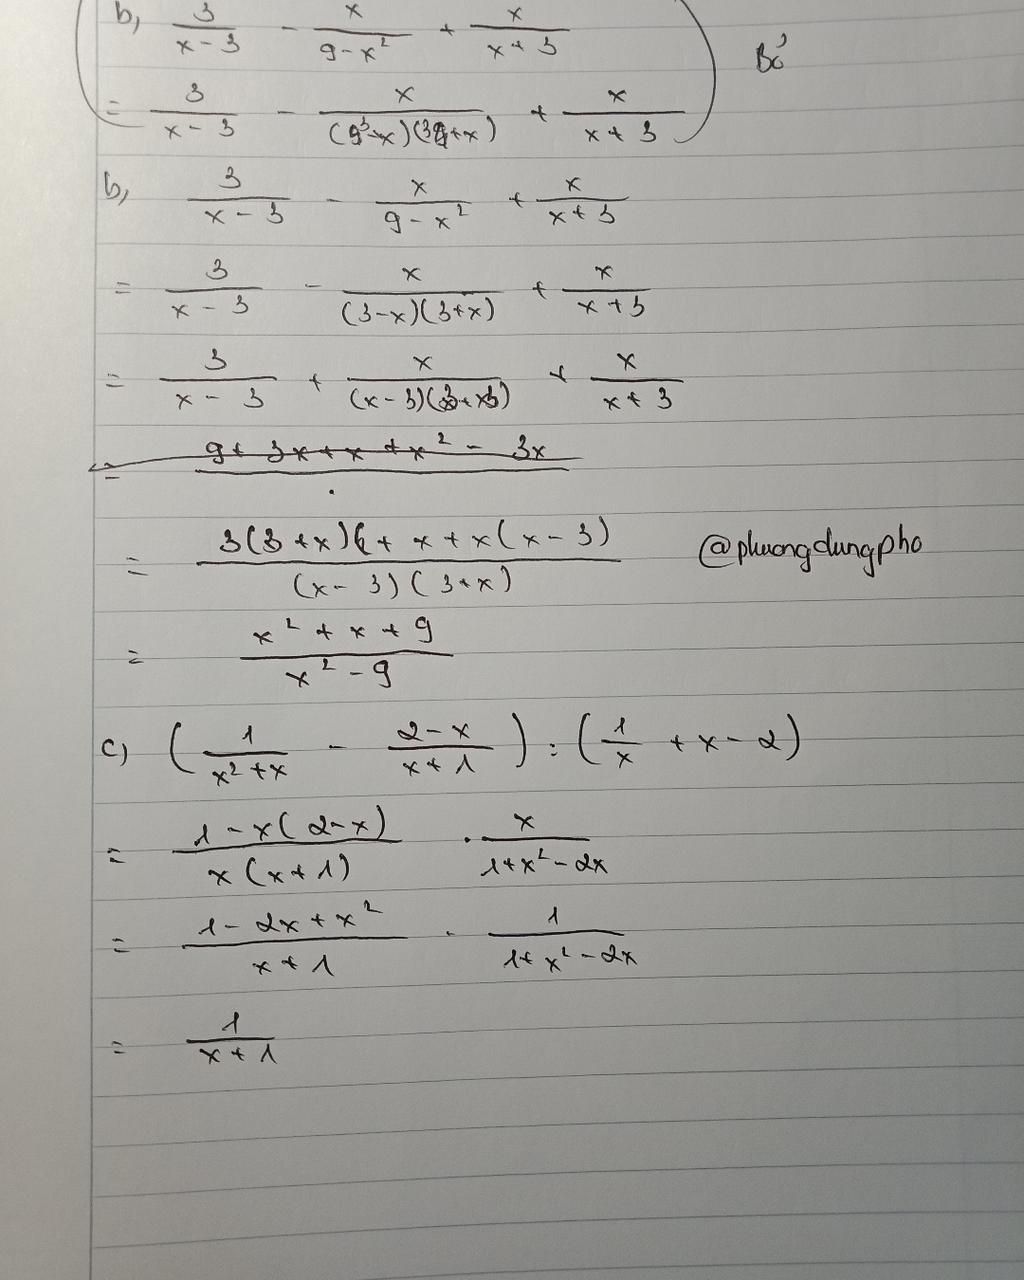 b, 3/(x-3) - x/(9-x²) + x/(x+3) Bỏ
= 3/(x-3) - x/((3-x)(3+x)) + x/(x+3)
b, 3/(x-3) - x/(9-x²) + x/(x+3)
= 3/(x-3) - x/((3-x)(3+x)) + x/(x+3)
= 3/(x-3) + x/((x-3)(3+x)) + x/(x+3)
= 9+3x+x+x²-3x
= (3(3+x) + x + x(x-3))/((x-3)(3+x)) @phuongdungpho
= (x²+x+9)/(x²-9)
c) (1/(x²+x) - (2-x)/(x+1)) : (1/x + x - 2)
= (1-x(2-x))/(x(x+1)) . x/(1+x²-2x)
= (1-2x+x²)/(x+1) . 1/(1+x²-2x)
= 1/(x+1)